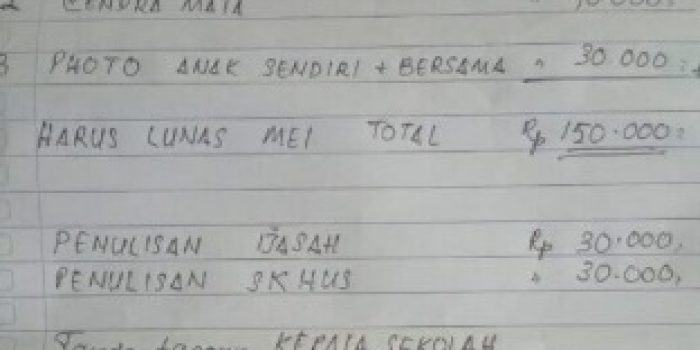 2 CENDRA MATA
3 PHOTO ANAK SENDIRI + BERSAMA " 30.000
HARUS LUNAS MEI TOTAL Rp 150.000
PENULISAN IJASAH Rp 30.000,
PENULISAN SKHUS " 30.000,
KEPALA SEKOLAH